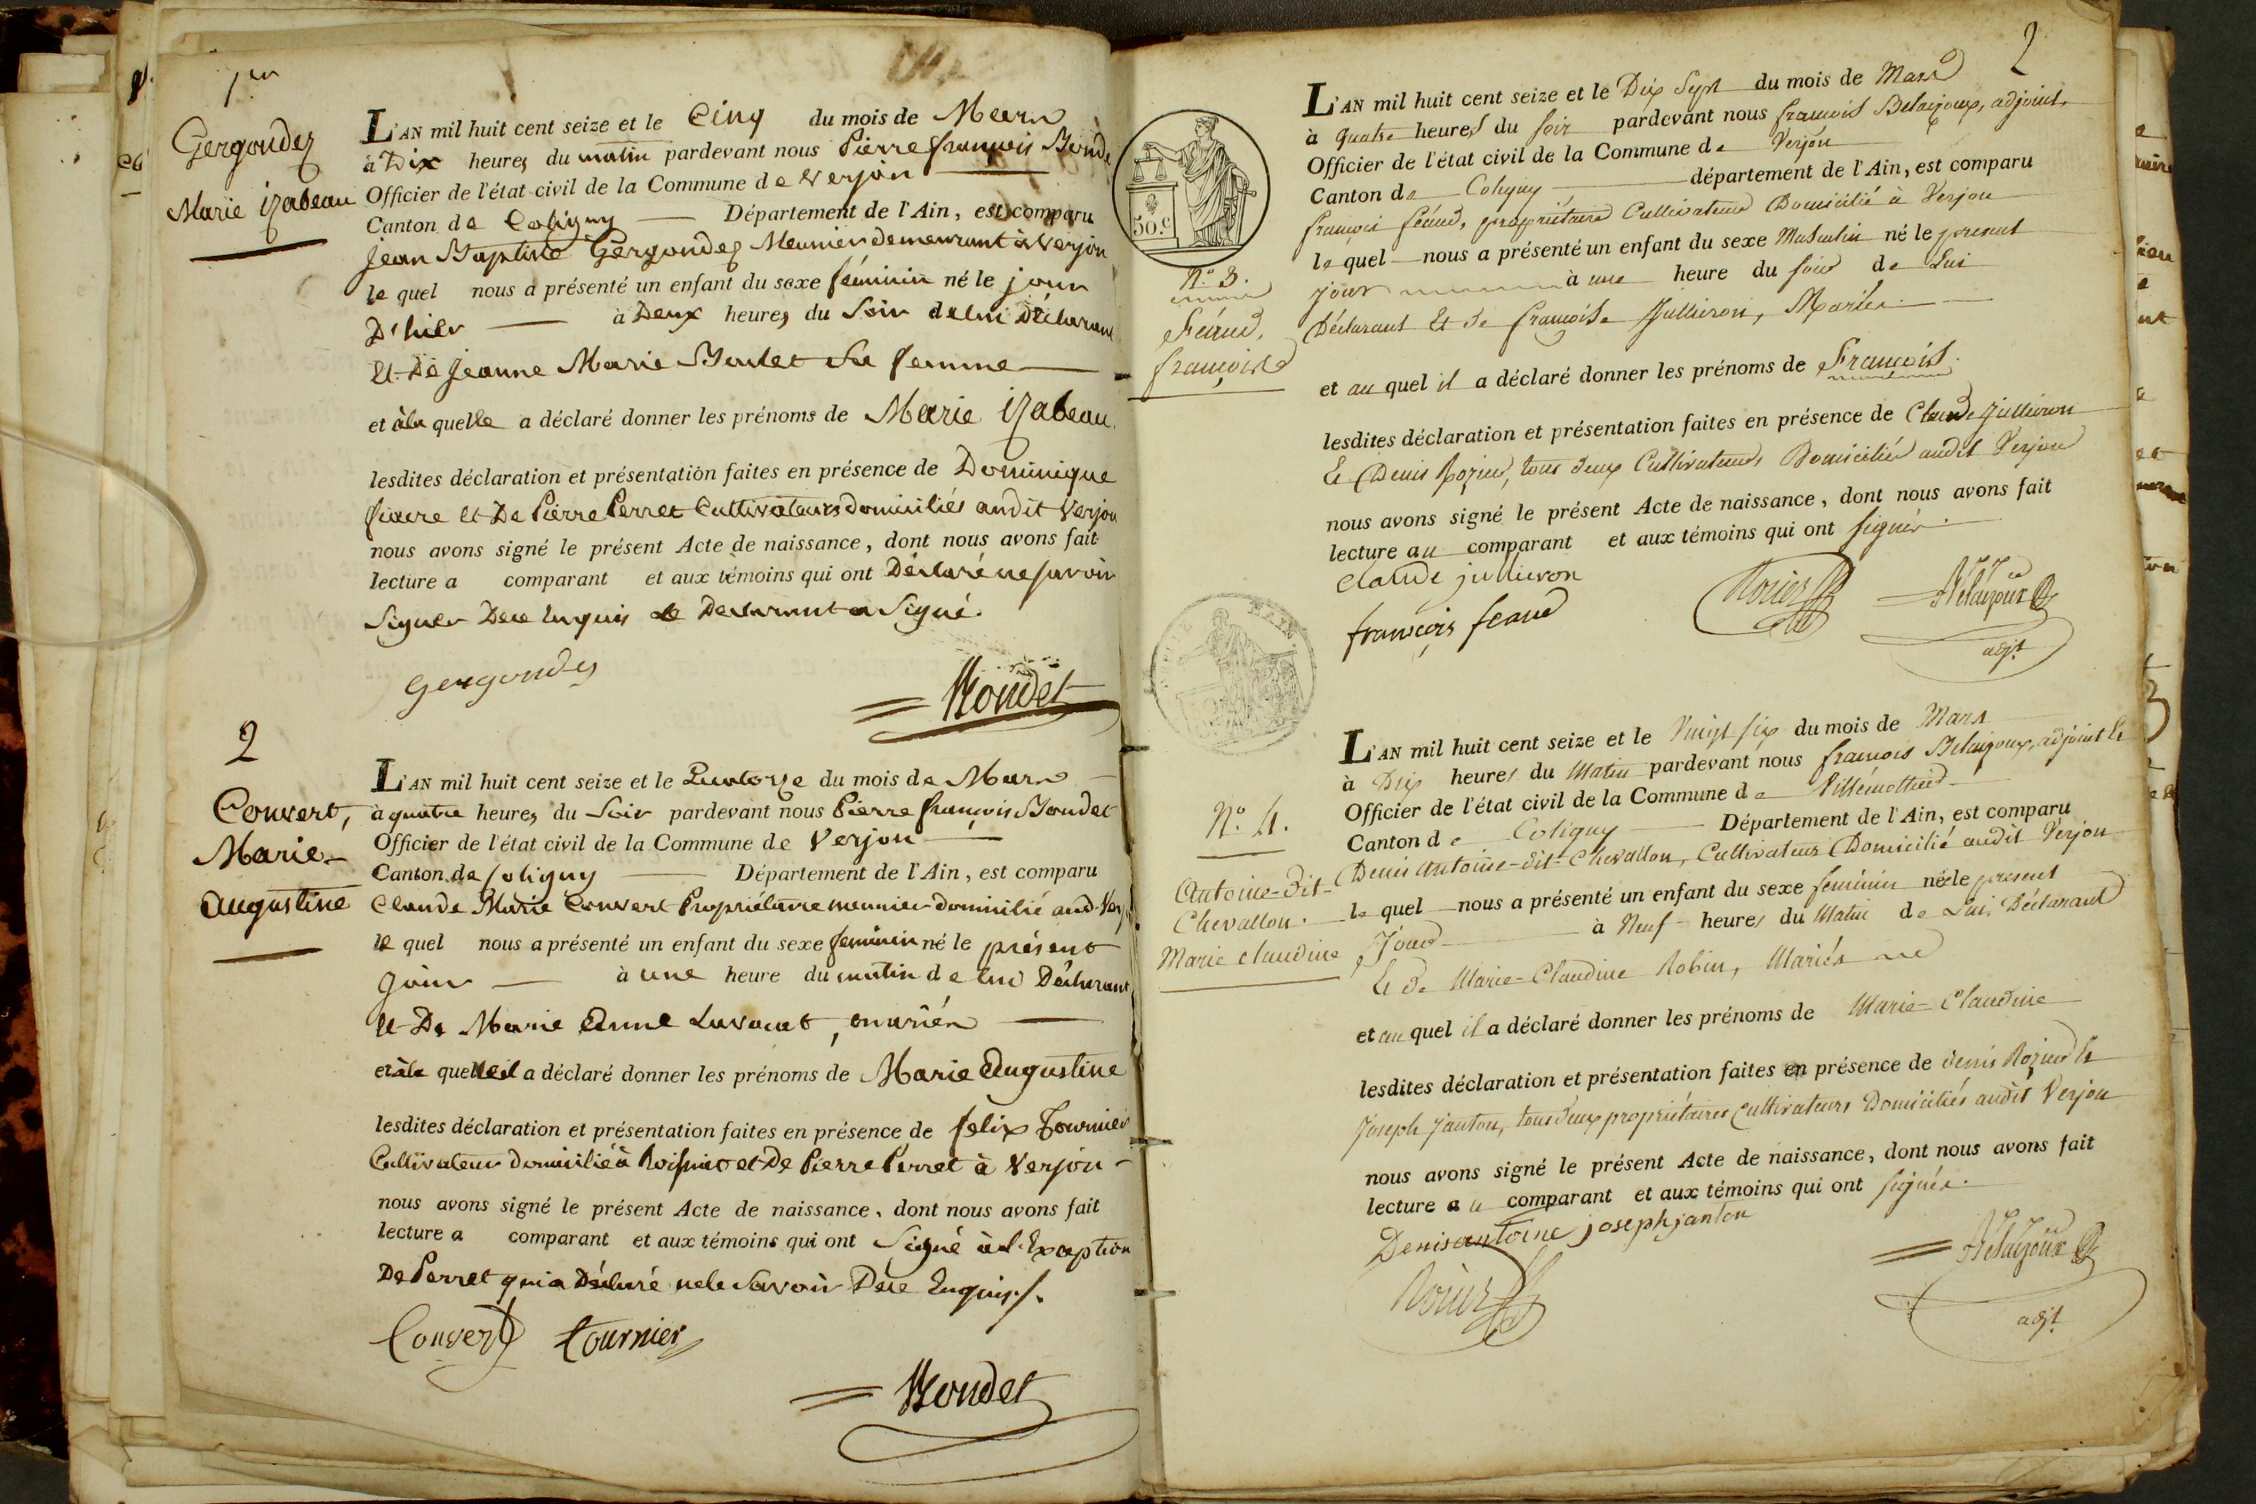 1er
Gergondez
Marie izabeau
L'AN mil huit cent seize et le Cinq du mois de Mars
à Dix heures du matin pardevant nous Pierre françois Bondet
Officier de l'état civil de la Commune de Verjon
Canton de Coligny Département de l'Ain, est comparu
Jean Baptiste Gergondez Meunier demeurant à Verjon
le quel nous a présenté un enfant du sexe féminin né le jour
D'hier à Deux heures du Soir de lui Déclarant
Et De Jeanne Marie Boulet Sa femme
et à la quelle a déclaré donner les prénoms de Marie izabeau
lesdites déclaration et présentation faites en présence de Dominique
fiacre et De Pierre Perret Cultivateurs domiciliés audit Verjon
nous avons signé le présent Acte de naissance, dont nous avons fait
lecture a comparant et aux témoins qui ont Déclaré ne savoir
Signer De ce Enquis le Déclarant a Signé.
Gergondez
Bondet
2
Convert,
Marie
Augustine
L'AN mil huit cent seize et le Quatorze du mois de Mars
à quatre heures du Soir pardevant nous Pierre françois Bondet
Officier de l'état civil de la Commune de Verjon
Canton de Coligny Département de l'Ain, est comparu
Claude Marie Convert Propriétaire meunier domicilié aud. Verjon
le quel nous a présenté un enfant du sexe feminin né le présent
Jour à une heure du matin de lui Déclarant
Et De Marie Anne Lavocat, mariés
et à la quelle il a déclaré donner les prénoms de Marie Augustine
lesdites déclaration et présentation faites en présence de félix Tournier
Cultivateur domicilié à Roissiat et De Pierre Perret à Verjon
nous avons signé le présent Acte de naissance, dont nous avons fait
lecture a comparant et aux témoins qui ont Signé à l'Exception
De Perret qui a Déclaré ne le Savoir De ce Enquis./.
Convert tournier
Bondet
2
50.c
N.o 3.
Féaud,
françois
L'AN mil huit cent seize et le Dix Sept du mois de Mars
à quatre heures du soir pardevant nous françois Belaizoux, adjoint
Officier de l'état civil de la Commune de Verjon
Canton de Coligny département de l'Ain, est comparu
françois féaud, propriétaire Cultivateur Domicilié à Verjon
le quel nous a présenté un enfant du sexe Masculin né le present
jour à une heure du soir de Lui
Déclarant Et de françoise Jullieron, Mariés
et au quel il a déclaré donner les prénoms de François.
lesdites déclaration et présentation faites en présence de Claude Jullieron
Et Denis Rozier, tous deux Cultivateurs Domiciliés audit Verjon
nous avons signé le présent Acte de naissance, dont nous avons fait
lecture au comparant et aux témoins qui ont signés.
claude jullieron
françois feaud
Rozier
Belaizoux
adjt
N.o 4.
Antoine-dit-
Chevallon.
Marie claudine
L'AN mil huit cent seize et le Vingt six du mois de Mars
à Dix heures du Matin pardevant nous françois Belaizoux, adjoint Et
Officier de l'état civil de la Commune de Villémotier
Canton de Coligny Département de l'Ain, est comparu
Denis Antoine-dit-Chevallon, Cultivateur Domicilié audit Verjon
le quel nous a présenté un enfant du sexe feminin né le present
Jour à Neuf heures du Matin de Lui Déclarant
Et de Marie-Claudine Robin, Mariés
et au quel il a déclaré donner les prénoms de Marie-Claudine
lesdites déclaration et présentation faites en présence de denis Rozier Et
Joseph Janton, tous deux propriétaires Cultivateurs Domiciliés audit Verjon
nous avons signé le présent Acte de naissance, dont nous avons fait
lecture au comparant et aux témoins qui ont signés.
Denis antoine joseph janton
Rozier
Belaizoux
adjt